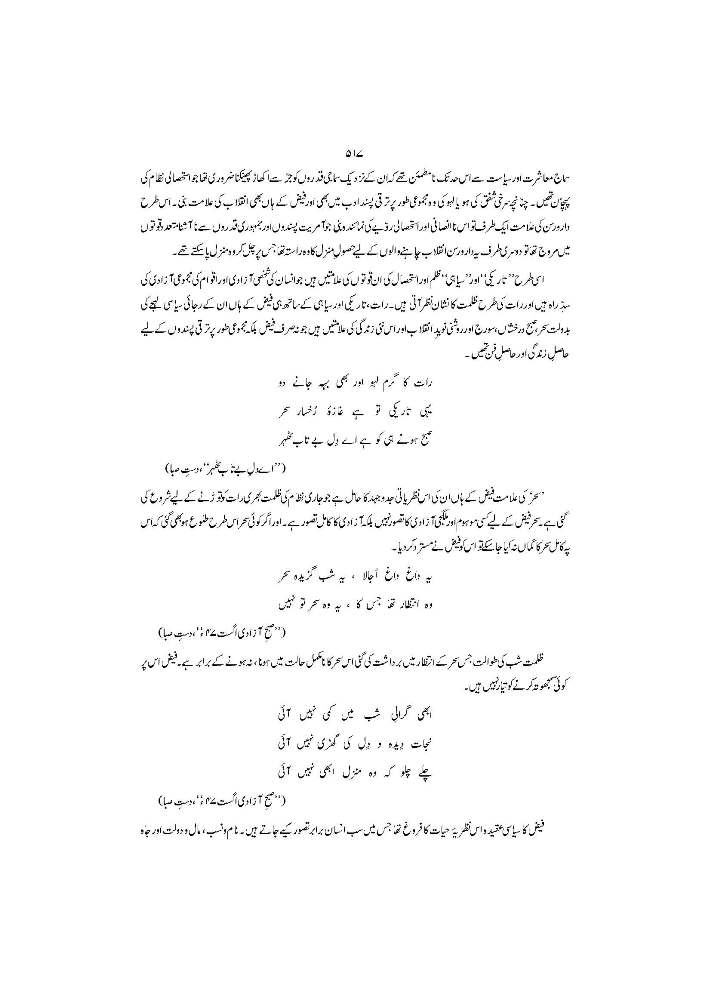 ۵۱۷
سماج معاشرت اور سیاست سے اس حد تک نامطمئن تھے کہ ان کے نزدیک سماجی قدروں کو جڑ سے اکھاڑ پھینکنا ضروری تھا جو استحصالی نظام کی
پہچان تھیں۔ چنانچہ سرخی شفق کی ہو یا لہو کی وہ مجموعی طور پر ترقی پسند ادب میں بھی اور فیض کے ہاں بھی انقلاب کی علامت بنی۔ اس طرح
دار و رسن کی علامت ایک طرف تو اس ناانصافی اور استحصالی رویے کی نمائندہ بنی جو آمریت پسندوں اور جمہوری قدروں سے ناآشنا متعدد قوتوں
میں مروج تھا تو دوسری طرف یہ دار و رسن انقلاب چاہنے والوں کے لیے حصولِ منزل کا وہ راستہ تھا جس پر چل کر وہ منزل پا سکتے تھے۔
اسی طرح ’’تاریکی‘‘ اور ’’سیاہی‘‘ ظلم اور استحصال کی ان قوتوں کی علامتیں ہیں جو انسان کی شخصی آزادی اور اقوام کی مجموعی آزادی کی
سدِّ راہ ہیں اور رات کی طرح ظلمت کا نشان نظر آتی ہیں۔ رات، تاریکی اور سیاہی کے ساتھ ہی فیض کے ہاں ان کے رجائی سیاسی لہجے کی
بدولت سحر، صبحِ درخشاں، سورج اور روشنی نویدِ انقلاب اور اس نئی زندگی کی علامتیں ہیں جو نہ صرف فیض بلکہ مجموعی طور پر ترقی پسندوں کے لیے
حاصلِ زندگی اور حاصلِ فن تھیں۔
رات کا گرم لہو اور بھی بہہ جانے دو
یہی تاریکی تو ہے غازۂ رُخسارِ سحر
صبح ہونے ہی کو ہے اے دلِ بے تاب ٹھہر
(’’اے دلِ بے تاب ٹھہر‘‘، دستِ صبا)
’سحر‘ کی علامت فیض کے ہاں ان کی اس نظریاتی جدوجہد کا حامل ہے جو جاری نظام کی ظلمت بھری رات کو توڑنے کے لیے شروع کی
گئی ہے۔ سحر فیض کے لیے کسی موہوم اور ملگجی آزادی کا تصور نہیں بلکہ آزادی کا کامل تصور ہے۔ اور اگر کوئی سحر اس طرح طلوع ہو بھی گئی کہ اس
پہ کامل سحر کا گماں نہ کیا جا سکے تو اس کو فیض نے مسترد کر دیا۔
یہ داغ داغ اُجالا ، یہ شب گزیدہ سحر
وہ انتظار تھا جس کا ، یہ وہ سحر تو نہیں
(’’صبحِ آزادی اگست ۴۷ء‘‘، دستِ صبا)
ظلمتِ شب کی طوالت جس سحر کے انتظار میں برداشت کی گئی اس سحر کا نامکمل حالت میں ہونا، نہ ہونے کے برابر ہے۔ فیض اس پر
کوئی سمجھوتہ کرنے کو تیار نہیں ہیں۔
ابھی گرانیِ شب میں کمی نہیں آئی
نجاتِ دیدہ و دِل کی گھڑی نہیں آئی
چلے چلو کہ وہ منزل ابھی نہیں آئی
(’’صبحِ آزادی اگست ۴۷ء‘‘، دستِ صبا)
فیض کا سیاسی عقیدہ اس نظریۂ حیات کا فروغ تھا جس میں سب انسان برابر تصور کیے جاتے ہیں۔ نام و نسب، مال و دولت اور جاہ